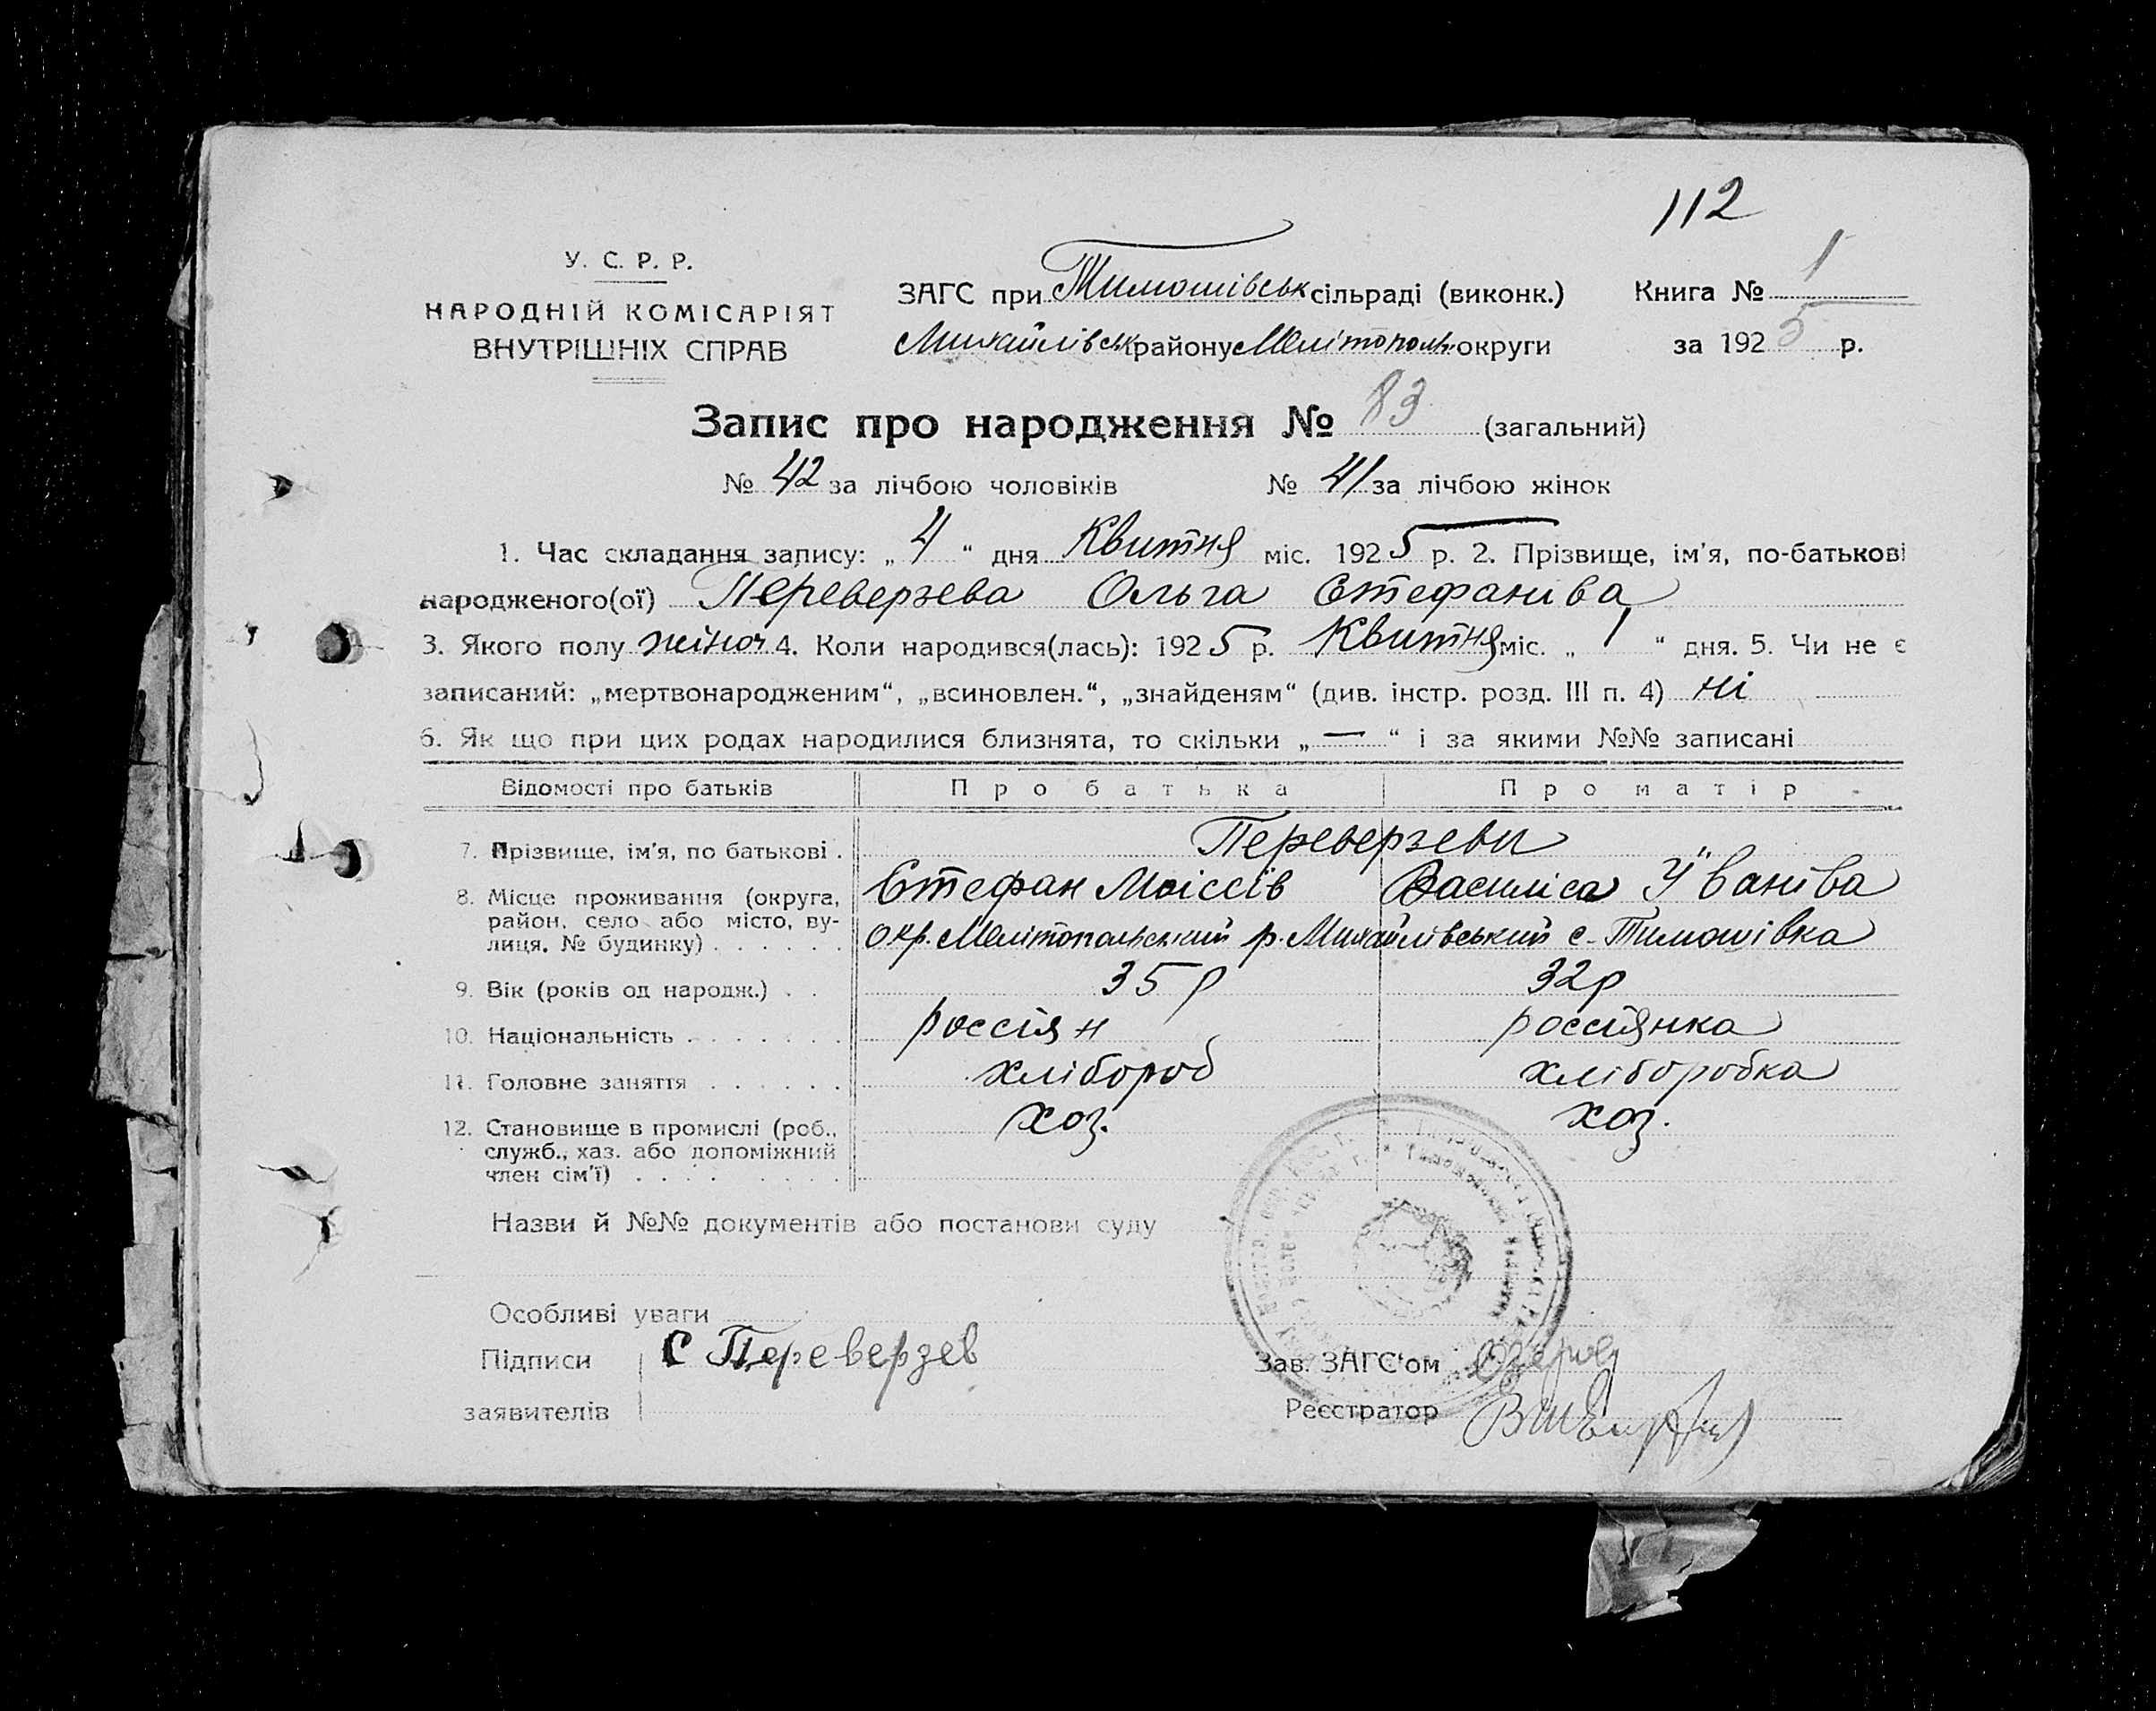 112
У. С. Р. Р.
НАРОДНІЙ КОМІСАРІЯТ
ВНУТРІШНІХ СПРАВ
ЗАГС при Тимошівськ сільраді (виконк.)
Михайлівськ району Мелітополь округи
Книга № 1
за 1925 р.
Запис про народження № 83 (загальний)
№ 42 за лічбою чоловіків № 41 за лічбою жінок
1. Час складання запису: „4“ дня Квитня міс. 1925 р. 2. Прізвище, ім'я, по-батькові
народженого(ої) Переверзева Ольга Стефаніва
3. Якого полу жіноч 4. Коли народився(лась): 1925 р. Квитня міс. „1“ дня. 5. Чи не є
записаний: „мертвонародженим“, „всиновлен.“, „знайденям“ (див. інстр. розд. III п. 4) ні
6. Як що при цих родах народилися близнята, то скільки „—“ і за якими №№ записані
Відомості про батьків Про батька Про матір
Переверзеви
7. Прізвище, ім'я, по батькові . Стефан Моіссів Василіса Івиніва
8. Місце проживання (округа, район, село або місто, вулиця, № будинку) . . . . . . окр. Мелітопольський р. Михайлівський с. Тимошівка
9. Вік (років од народж.) . . 35 р 32 р
10. Національність . . . . . . . россіян россіянка
11. Головне заняття . . . . . . хлібороб хліборобка
12. Становище в промислі (роб., служб., хаз. або допоміжний член сім'ї) . . . . . . . . . хоз. хоз.
Назви й №№ документів або постанови суду
Особливі уваги
Підписи заявителів С Переверзев
Зав. ЗАГС'ом
Реєстратор